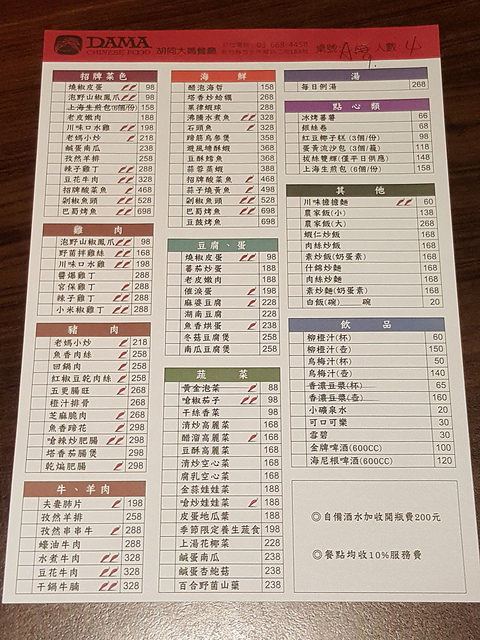 DAMA
CHINESE FOOD
胡同大嬸餐廳
03 668 4458
桌號 A9 人數 4
招牌菜色
燒椒皮蛋 98
泡野山椒鳳爪 98
上海生煎包(6個/份) 158
老皮嫩肉 188
川味口水雞 198
老媽小炒 218
鹹蛋南瓜 238
孜然羊排 258
辣子雞丁 288
豆花牛肉 328
招牌酸菜魚 468
剁椒魚頭 528
巴蜀烤魚 698
雞肉
泡野山椒鳳爪 98
野苗拌雞絲 168
川味口水雞 198
醬爆雞丁 288
宮保雞丁 288
辣子雞丁 288
小米椒雞丁 288
豬肉
老媽小炒 218
魚香肉絲 258
回鍋肉 258
紅椒豆乾肉絲 258
五更腸旺 268
橙汁排骨 268
芝麻脆肉 268
魚香蹄花 298
嗆辣炒肥腸 298
塔香茄腸煲 298
乾煸肥腸 298
牛、羊肉
夫妻肺片 198
孜然羊排 258
孜然串串牛 288
蠔油牛肉 288
水煮牛肉 328
豆花牛肉 328
干鍋牛腩 328
海鮮
醋泡海哲 158
塔香炒蛤蠣 268
果律蝦球 288
沸騰水煮魚 328
石頭魚 328
蹄筋烏參煲 358
避風塘酥蝦 368
豆酥鱈魚 368
蒜蓉蒸蝦 388
招牌酸菜魚 468
蒜子燒黃魚 498
剁椒魚頭 528
巴蜀烤魚 698
豆鼓烤魚 698
豆腐、蛋
燒椒皮蛋 98
蕃茄炒蛋 188
老皮嫩肉 188
催淚蛋 198
麻婆豆腐 228
湖南豆腐 228
魚香烘蛋 238
冬菇豆腐煲 258
南瓜豆腐煲 258
蔬菜
黃金泡菜 88
嗆椒茄子 98
干絲香菜 98
清炒高麗菜 168
醋溜高麗菜 168
豆酥高麗菜 168
清炒空心菜 168
腐乳空心菜 168
金蒜娃娃菜 188
嗆炒娃娃菜 188
皮蛋地瓜葉 188
季節限定養生蔬食 198
上湯花椰菜 228
鹹蛋南瓜 238
鹹蛋杏鮑菇 238
百合野菌山藥 238
湯
每日例湯 268
點心類
冰烤蕃薯 66
銀絲卷 68
紅豆椰子糕(3個/份) 98
蛋黃流沙包(3個/籠) 118
拔絲雙輝(僅平日供應) 148
上海生煎包(6個/份) 158
其他
川味擔擔麵 60
農家飯(小) 138
農家飯(大) 268
蝦仁炒飯 168
肉絲炒飯 168
素炒飯(奶蛋素) 168
什錦炒麵 168
肉絲炒麵 168
素炒麵(奶蛋素) 168
白飯(碗) 碗 20
飲品
柳橙汁(杯) 60
柳橙汁(壺) 150
烏梅汁(杯) 50
烏梅汁(壺) 140
香濃豆漿(杯) 65
香濃豆漿(壺) 160
小礦泉水 20
可口可樂 30
雪碧 30
金牌啤酒(600CC) 100
海尼根啤酒(600CC) 120
◎自備酒水加收開瓶費200元
◎餐點均收10%服務費